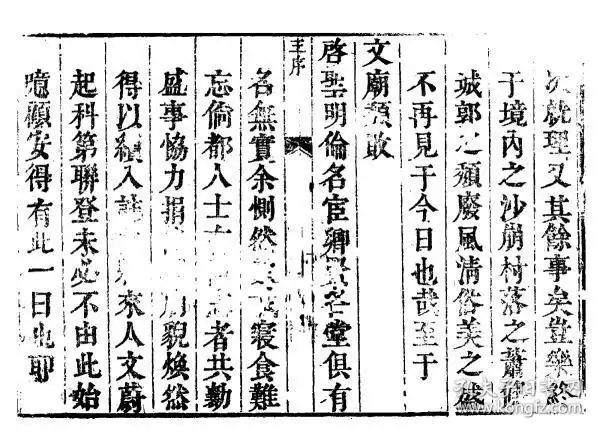 次就理又其餘事矣豈樂終
于境內之沙崩村落之蕭條
城郭之頹廢風清俗美之盛
不再見于今日也哉至于
文廟頹敗
啓聖明倫名宦鄉賢各堂俱有
王序
名無實余惻然寢食難
忘倘都人士者共勷
盛事恊力捐廟貌煥然
得以續入誌來人文蔚
起科第聯登未必不由此始
噫顧安得有此一日也耶
www.kongfz.com